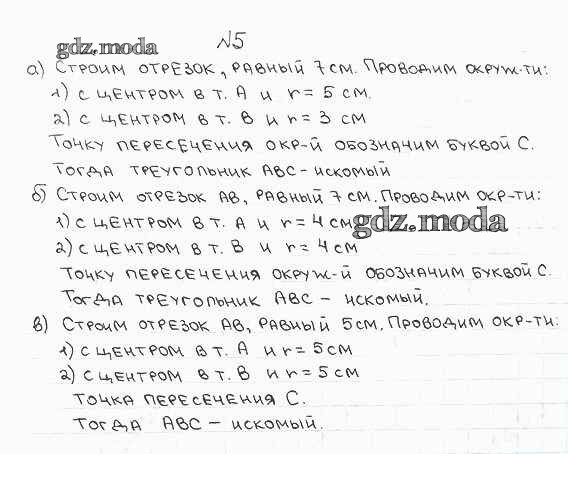 gdz.moda
№5
а) Строим отрезок, равный 7 см. Проводим окруж-ти:
1) с центром в т. А и r = 5 см.
2) с центром в т. В и r = 3 см
Точку пересечения окр-й обозначим буквой С.
Тогда треугольник АВС – искомый
б) Строим отрезок АВ, равный 7 см. Проводим окр-ти:
1) с центром в т. А и r = 4 см
gdz.moda
2) с центром в т. В и r = 4 см
Точку пересечения окруж-й обозначим буквой С.
Тогда треугольник АВС – искомый.
в) Строим отрезок АВ, равный 5 см. Проводим окр-ти:
1) с центром в т. А и r = 5 см
2) с центром в т. В и r = 5 см
Точка пересечения С.
Тогда АВС – искомый.